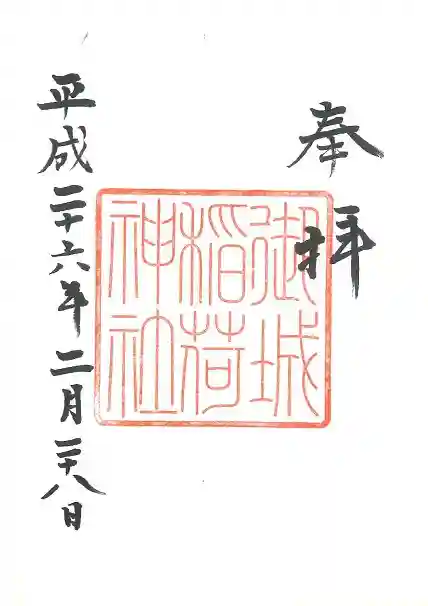 奉拝
御城
稲荷
神社
平成二十六年二月二十八日